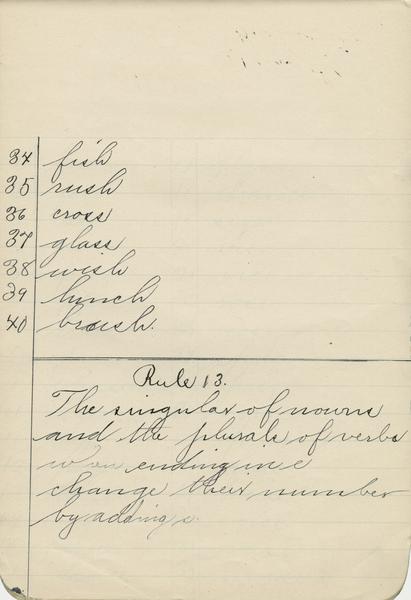 34 fish
35 rush
36 cross
37 glass
38 wish
39 lunch
40 brush.
Rule 13.
The singular of nouns
and the plurals of verbs
when ending in e
change their number
by adding s.